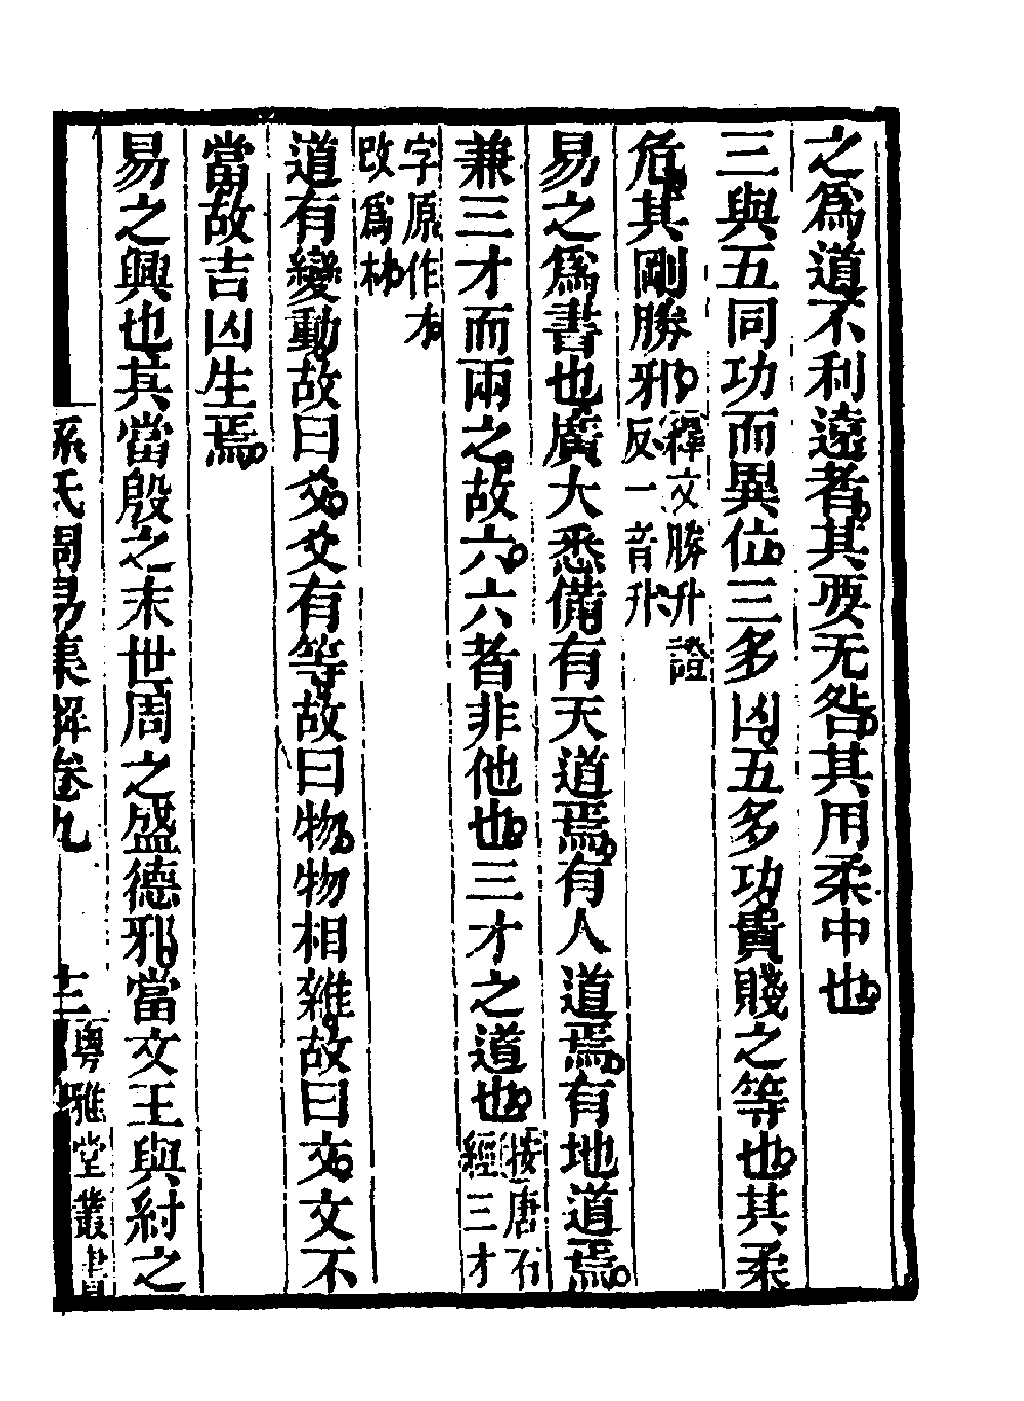 之爲道不利遠者其要无咎其用柔中也
三與五同功而異位三多凶五多功貴賤之等也其柔
危其剛勝邪釋文勝升證
反一音升
易之爲書也廣大悉備有天道焉有人道焉有地道焉
兼三才而兩之故六六者非他也三才之道也按唐石
經三才
字原作才
改爲材
道有變動故曰爻爻有等故曰物物相雜故曰文文不
當故吉凶生焉
易之興也其當殷之末世周之盛德邪當文王與紂之
孫氏周易集解卷九
十三
粤雅堂叢書